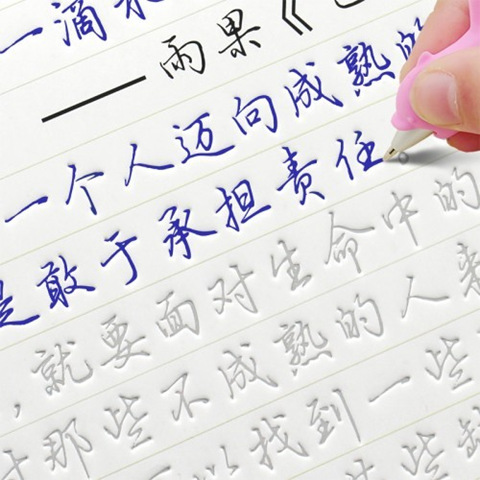 一滴水
——雨果《
一个人迈向成熟的
是敢于承担责任。
就要面对生命中的
，那些不成熟的人来
对那些不以找到一些